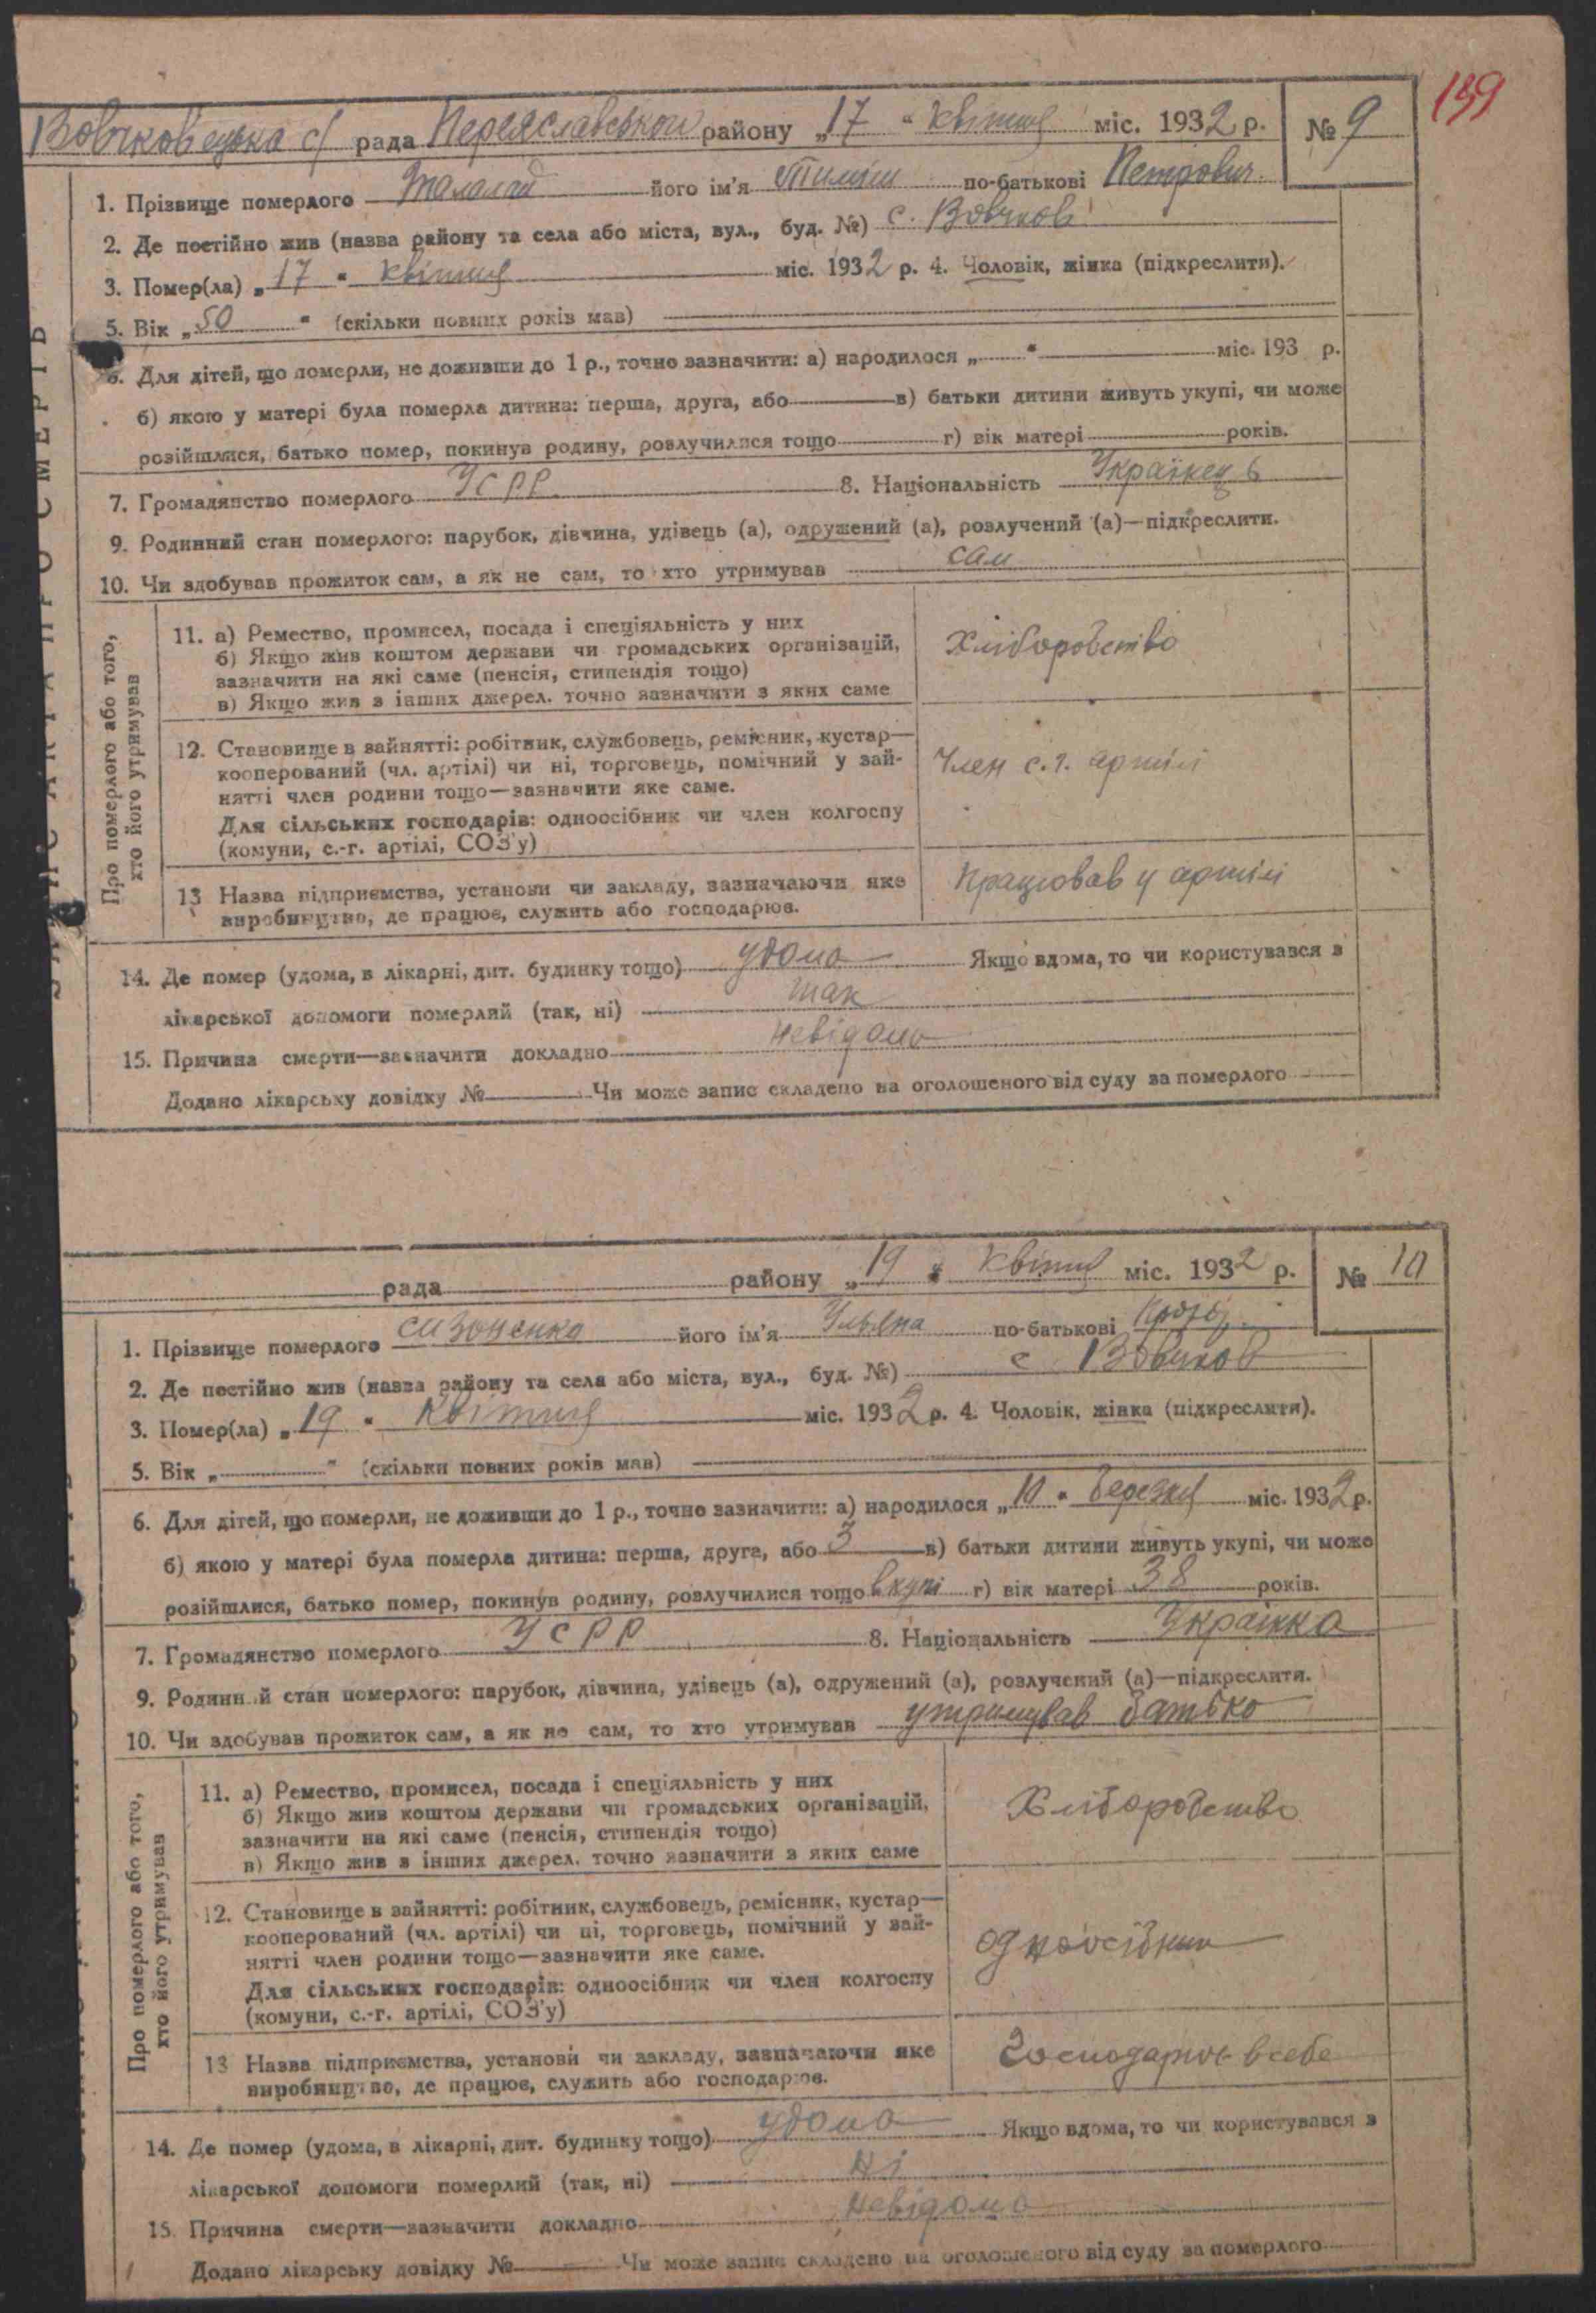 159
Вовчковецька с/ рада Переяславськои району „17 “ квітня міс. 1932 р. № 9
1. Прізвище померлого Талалай його ім'я Тиміш по-батькові Петрович.
2. Де постійно жив (назва району та села або міста, вул., буд. №) с. Вовчков
3. Помер(ла) „17 “ квітня міс. 1932 р. 4. Чоловік, жінка (підкреслити).
5. Вік „50 “ (скільки повних років мав)
6. Для дітей, що померли, не доживши до 1 р., точно зазначити: а) народилося „ “ міс. 193 р.
б) якою у матері була померла дитина: перша, друга, або в) батьки дитини живуть укупі, чи може
розійшлися, батько помер, покинув родину, розлучилися тощо г) вік матері років.
7. Громадянство померлого УСРР 8. Національність Українець
9. Родинний стан померлого: парубок, дівчина, удівець (а), одружений (а), розлучений (а)—підкреслити.
10. Чи здобував прожиток сам, а як не сам, то хто утримував сам
Про померлого або того,
хто його утримував
11. а) Ремество, промисел, посада і спеціяльність у них
б) Якщо жив коштом держави чи громадських організацій,
зазначити на які саме (пенсія, стипендія тощо)
в) Якщо жив з інших джерел. точно зазначити з яких саме
Хліборобство
12. Становище в зайнятті: робітник, службовець, ремісник, кустар—
кооперований (чл. артілі) чи ні, торговець, помічний у зай-
нятті член родини тощо—зазначити яке саме.
Для сільських господарів: одноосібник чи член колгоспу
(комуни, с.-г. артілі, СОЗ'у)
Член с.г. артілі
13 Назва підприємства, установи чи закладу, зазначаючи яке
виробництво, де працює, служить або господарює.
Працював у артілі
14. Де помер (удома, в лікарні, дит. будинку тощо) удома Якщо вдома, то чи користувався з
лікарської допомоги померлий (так, ні) так
15. Причина смерти—зазначити докладно невідомо
Додано лікарську довідку № Чи може запис складено на оголошеного від суду за померлого
рада району „19 “ квітня міс. 1932 р. № 10
1. Прізвище померлого Сизоненко його ім'я Уляна по-батькові
2. Де постійно жив (назва району та села або міста, вул., буд. №) с Вовчков
3. Помер(ла) „19 “ квітня міс. 1932 р. 4. Чоловік, жінка (підкреслити).
5. Вік „ “ (скільки повних років мав)
6. Для дітей, що померли, не доживши до 1 р., точно зазначити: а) народилося „10 “ березня міс. 1932 р.
б) якою у матері була померла дитина: перша, друга, або 3 в) батьки дитини живуть укупі, чи може
розійшлися, батько помер, покинув родину, розлучилися тощо вкупі г) вік матері 38 років.
7. Громадянство померлого УСРР 8. Національність Українка
9. Родинний стан померлого: парубок, дівчина, удівець (а), одружений (а), розлучений (а)—підкреслити.
10. Чи здобував прожиток сам, а як не сам, то хто утримував утримував батько
Про померлого або того,
хто його утримував
11. а) Ремество, промисел, посада і спеціяльність у них
б) Якщо жив коштом держави чи громадських організацій,
зазначити на які саме (пенсія, стипендія тощо)
в) Якщо жив з інших джерел. точно зазначити з яких саме
Хліборобство
12. Становище в зайнятті: робітник, службовець, ремісник, кустар—
кооперований (чл. артілі) чи ні, торговець, помічний у зай-
нятті член родини тощо—зазначити яке саме.
Для сільських господарів: одноосібник чи член колгоспу
(комуни, с.-г. артілі, СОЗ'у)
одноосібник
13 Назва підприємства, установи чи закладу, зазначаючи яке
виробництво, де працює, служить або господарює.
Господарює в себе
14. Де помер (удома, в лікарні, дит. будинку тощо) удома Якщо вдома, то чи користувався з
лікарської допомоги померлий (так, ні) ні
15. Причина смерти—зазначити докладно невідомо
Додано лікарську довідку № Чи може запис складено на оголошеного від суду за померлого